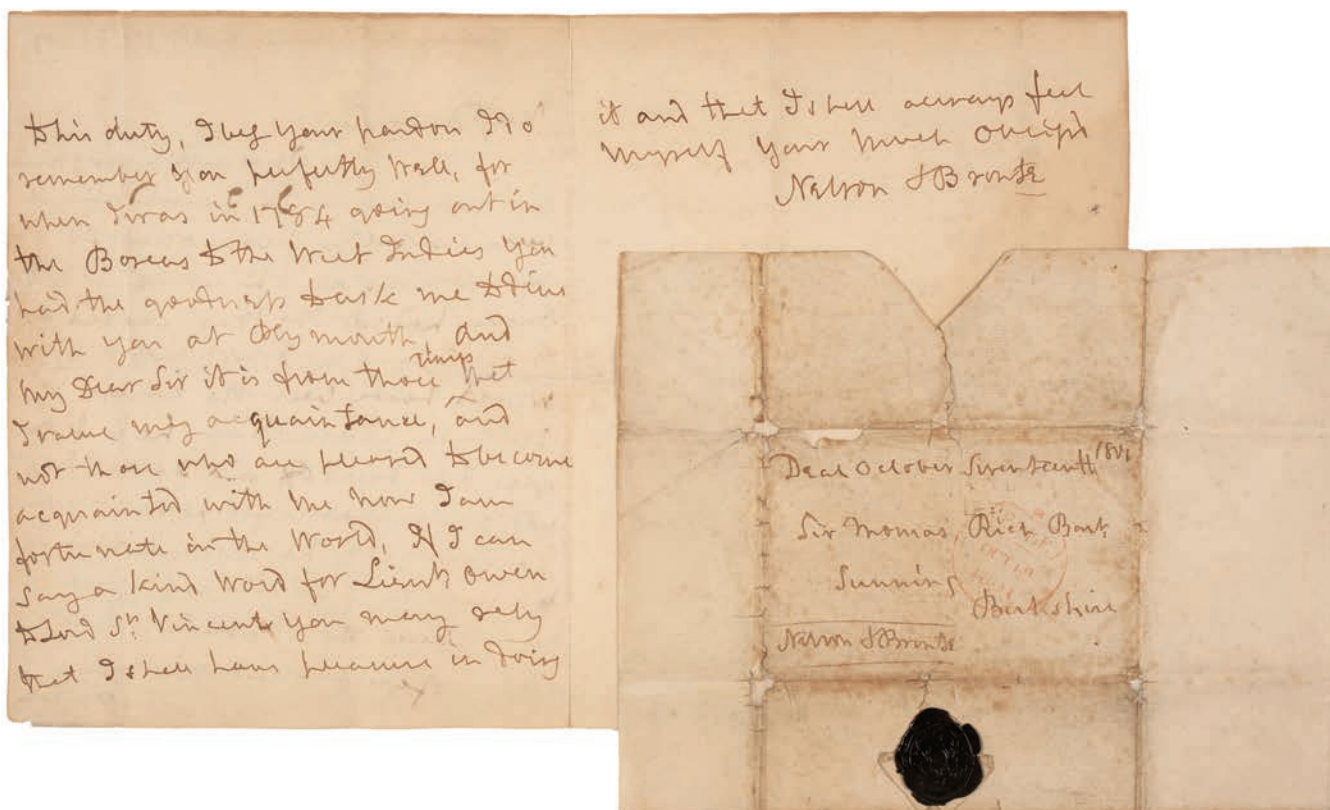 to his duty, I beg your pardon I do
remember you perfectly well, for
when I was in 1784 going out in
the Boreas to the West Indies you
had the goodness to ask me to dine
with you at Plymouth, and
times
my Dear Sir it is from those that
I value my acquaintance, and
not those who are pleased to become
acquainted with me now I am
fortunate in the World, If I can
say a kind word for Lieut Owen
to Lord St. Vincent you may rely
that I shall have pleasure in doing
it and that I shall always feel
myself your much Oblig'd
Nelson & Bronte
Deal October Seventeenth 1801
Sir Thomas Rich Bart.
Sunning
Berkshire
Nelson & Bronte